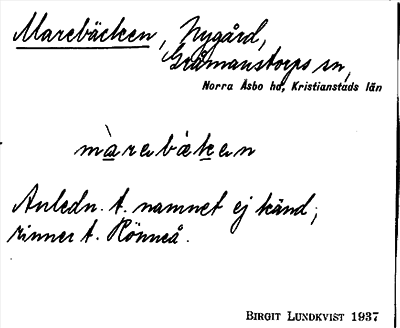 Marebäcken, Nygård,
Gråmanstorps sn,
Norra Åsbo hd, Kristianstads län
màrebäken
Anledn. t. namnet ej känd;
rinner t. Rönneå.
BIRGIT LUNDKVIST 1937